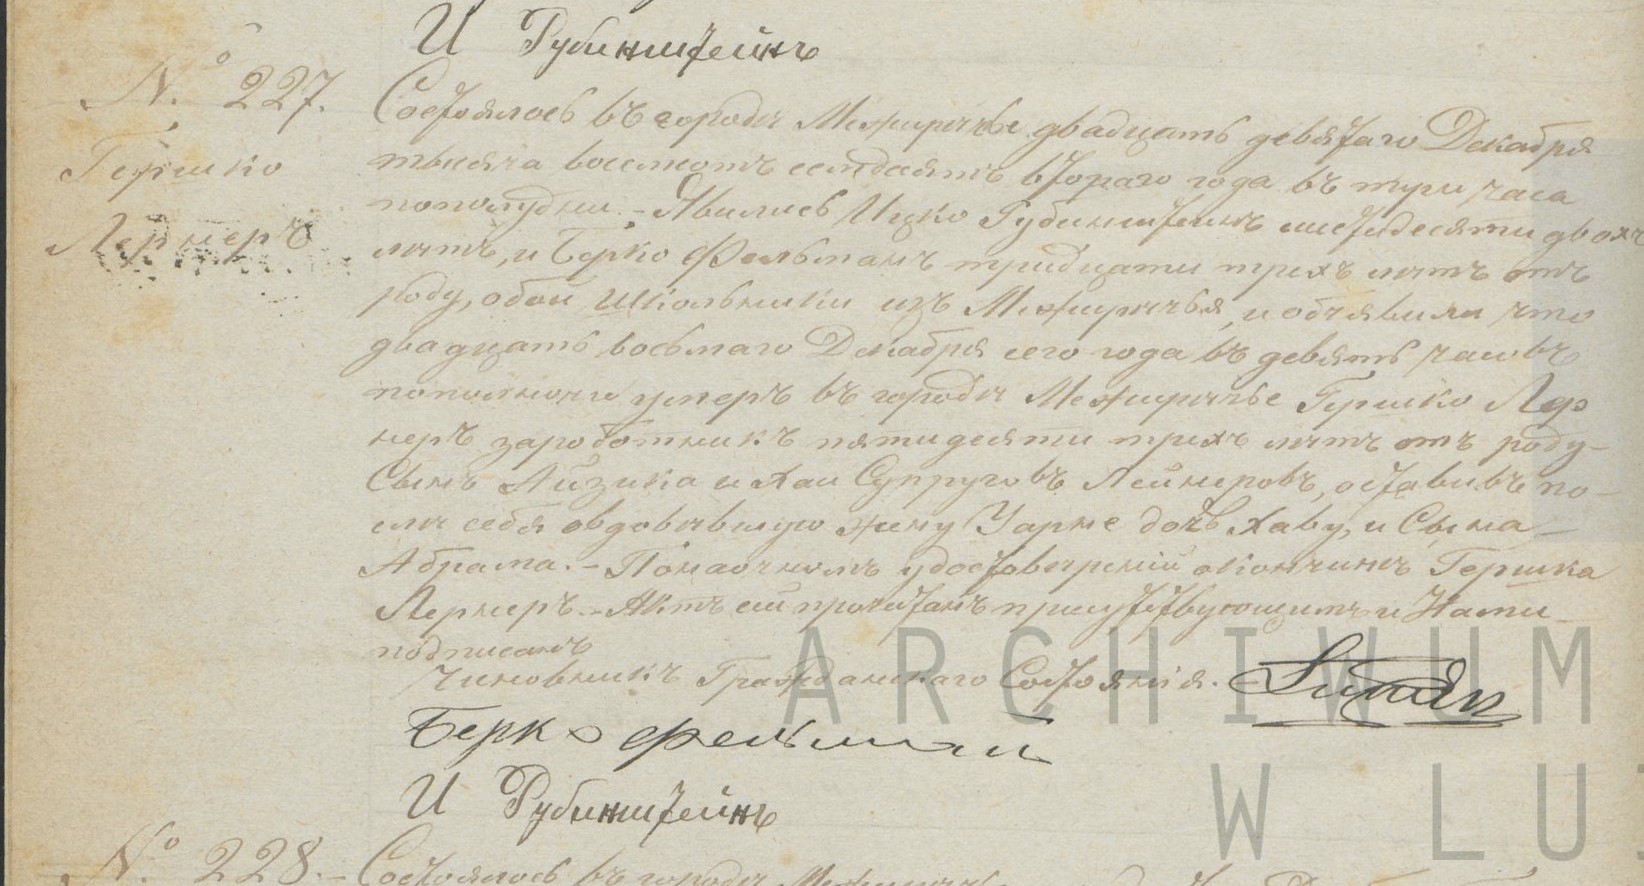 И Рубинштейнъ
№ 227.
Гершко
Лернеръ
Состоялось въ городѣ Межирѣчье двадцать девятаго Декабря
тысяча восемсотъ семдесятъ втораго года въ три часа
пополудни. – Явились Ицко Рубинштейнъ шестьдесяти двохъ
лѣтъ, и Берко Фельманъ тридцати трехъ лѣтъ отъ
роду, обои школьники изъ Межирѣчья, и объявили что
двадцать восьмаго Декабря сего года въ девять часовъ
пополночи умеръ въ городѣ Межирѣчье Гершко Лер
неръ заработникъ пятидесяти трехъ лѣтъ отъ роду –
Сынъ Айзика и Хаи Супруговъ Лейнеровъ, оставивъ по –
слѣ себя овдовѣвшую жену дочь Хаву, и Сына –
Абрама. – Понаочномъ удостовѣреніи окончинѣ Гершка
Лернеръ. – Актъ сей прочитанъ присутствующимъ и Нами
подписанъ
Чиновникъ Гражданскаго Состоянія.
Берко Фельман
И Рубинштейнъ
№ 228. – Состоялось въ городѣ
ARCHIWUM
W LU